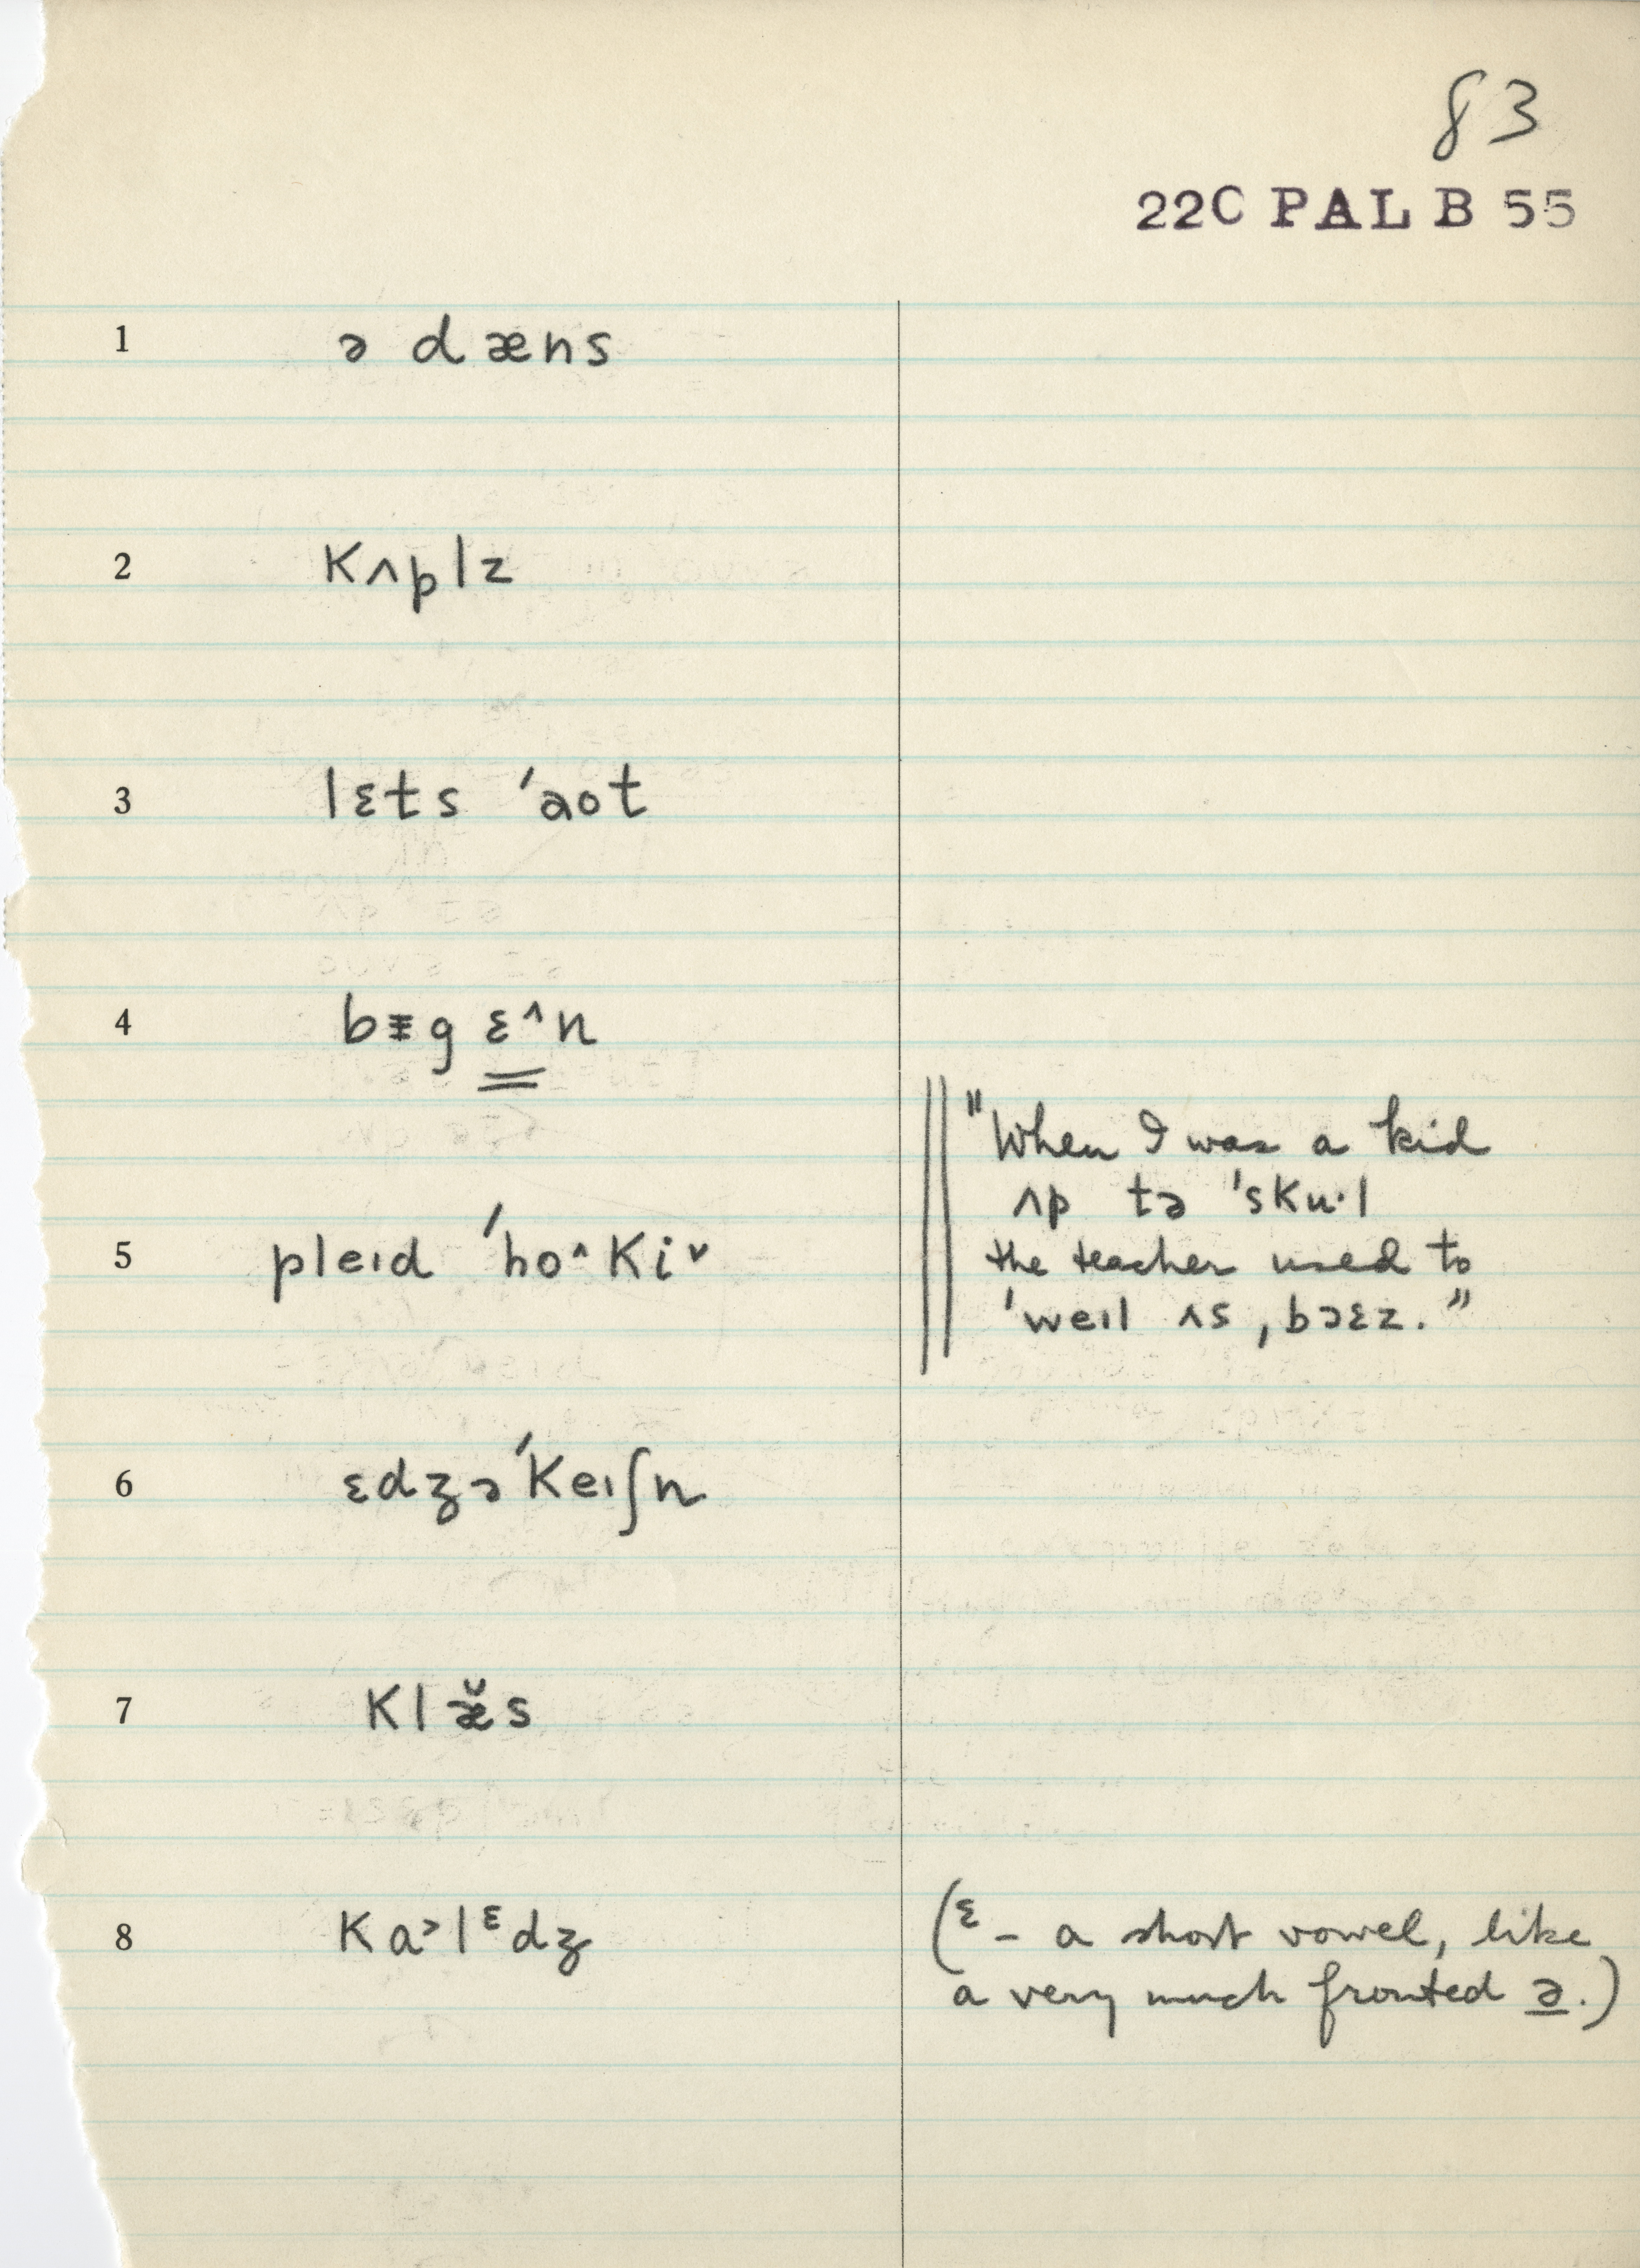 83
22C PAL B 55
1 ə dæns
2 Kʌplz
3 lɛts ˈaot
4 bɪ̵g ɛ^n
5 pleɪd ˈho^Kiˇ
"When I was a kid
ʌp tə ˈsKuˑl
the teacher used to
ˈweɪl ʌs ˌbɔɛz."
6 ɛdʒəˈKeɪʃn
7 Klæ̆s
8 Ka˃lᵋdʒ
(ᵋ – a short vowel, like
a very much fronted ə.)